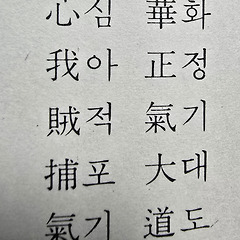 心심 華화
我아 正정
賊적 氣기
捕포 大대
氣기 道도